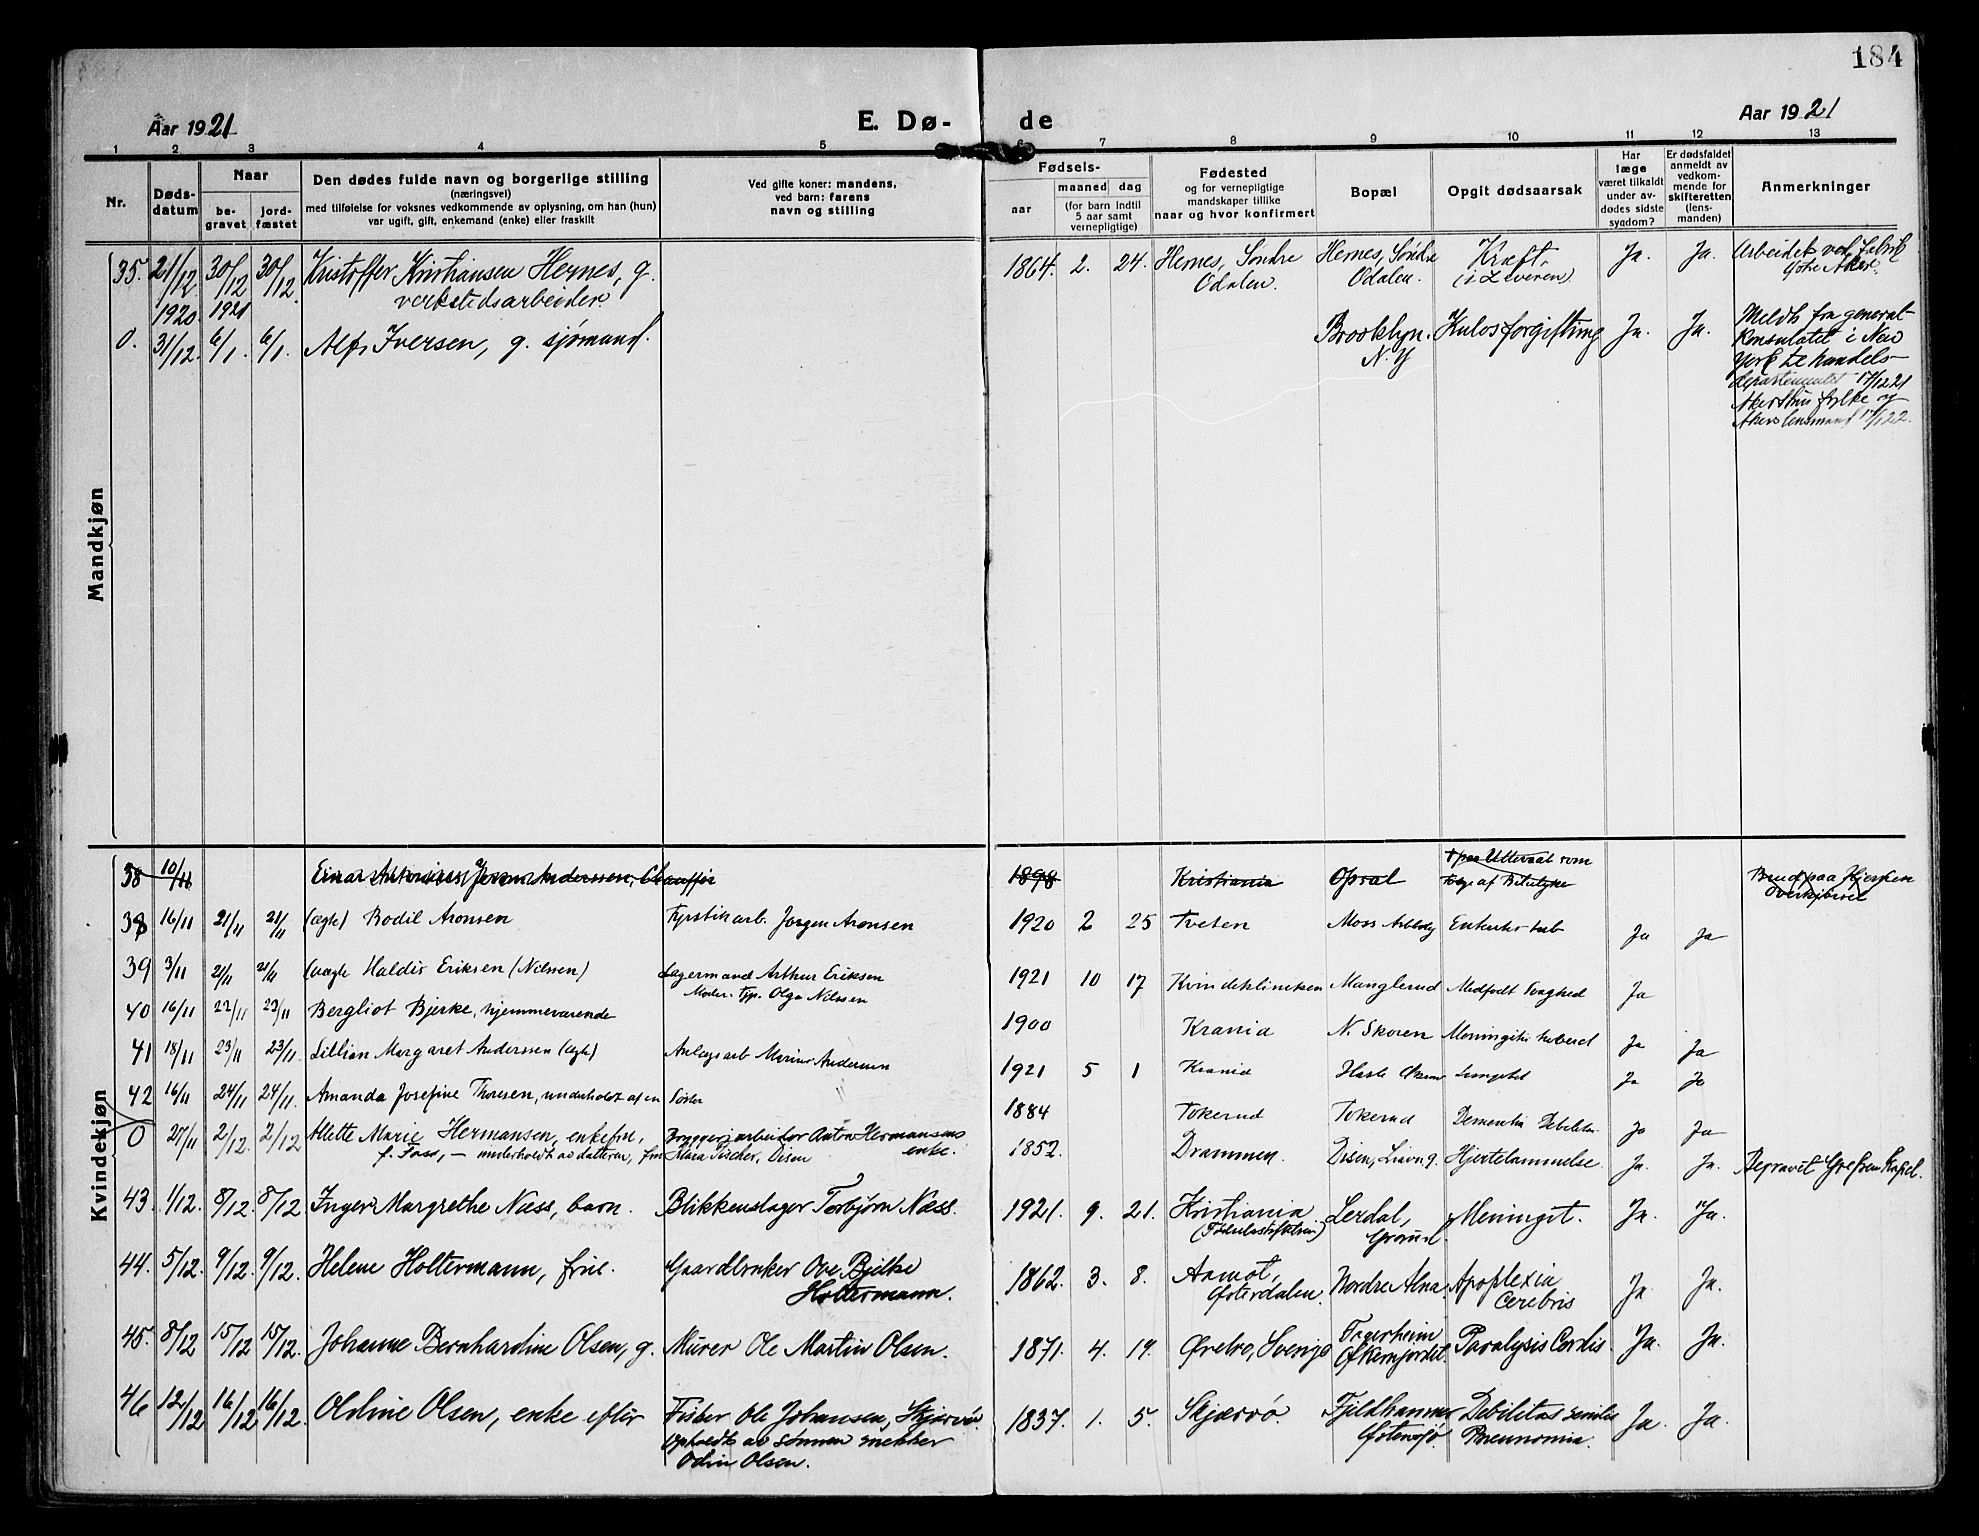 184
Aar 1921
E. Dø-
de
Aar 1921
1 2 3 4 5 6 7 8 9 10 11 12 13
Nr.
Døds-
datum
Naar
be-
gravet
jord-
fæstet
Den dødes fulde navn og borgerlige stilling
(næringsvei)
med tilføielse for voksnes vedkommende av oplysning, om han (hun)
var ugift, gift, enkemand (enke) eller fraskilt
Ved gifte koner: mandens,
ved barn: farens
navn og stilling
Fødsels-
aar
maaned
dag
(for barn indtil
5 aar samt
vernepligtige)
Fødested
og for vernepligtige
mandskaper tillike
naar og hvor konfirmert
Bopæl
Opgit dødsaarsak
Har
læge
været tilkaldt
under av-
dødes sidste
sygdom?
Er dødsfaldet
anmeldt av
vedkom-
mende for
skifteretten
(lens-
manden)
Anmerkninger
Mandkjøn
35. 21/12 30/12 30/12. Kristoffer Kristiansen Hernes, g.
verkstedsarbeider.
1864. 2. 24. Hernes, Søndre
Odalen.
Hernes, Søndre
Odalen.
Kræft
(i Leveren)
Ja. Ja. Arbeidet ved fabrik
1920. 1921
0. 31/12. 6/1. 6/1. Alf Iversen, g. sjømand.
Brooklyn.
N. Y
Kulosforgiftning Ja. Ja.
Meldt fra general-
konsulatet i New
York til handels-
departementet 17/12 21
Akershus fylke og
Akers lensmand
Kvindekjøn
38 10/11 Einar Anderssen, Chauffør
1898 Kristiania Opsal
38 16/11 21/11 21/11 (ægte) Bodil Aronsen Fyrstikarb. Jørgen Aronsen
1920 2 25 Tveten Ja Ja
39 3/11 21/11 21/11 (uægte Haldis Eriksen (Nilssen) Lagermand Arthur Eriksen
Moder: Olga Nilssen
1921 10 17 Kvindeklinikken Manglerud Medfødt Svaghed Ja
40 16/11 23/11 23/11 Bergliot Bjerke, hjemmeværende
1900 Krania N. Skøren Ja Ja
41 18/11 23/11 23/11. Lillian Margaret Anderssen (ægte) Anlægsarb Marius Andersen
1921 5 1 Krania Ja Ja
42 16/11 24/11 24/11. Amanda Josefine Thoresen, underholdt af en Søster
1884 Tokerud Tokerud Dementia Ja Ja
0 27/11 2/12. 2/12 Alette Marie Hermansen, enkefru, Bryggeriarbeider Anton Hermansens
f. Foss, — underholdt av datteren, fru Klara Fischer, Disen enke.
1852. Drammen. Disen, Hjertelammelse. Ja. Ja. Begravet Grefsen Kapel.
43. 1/12. 8/12. 8/12 Inger Margrethe Næss, barn. Blikkenslager Torbjørn Næss.
1921. 9. 21. Kristiania
(Fødselsstiftelsen)
Lerdal, Meningit. Ja. Ja.
44. 5/12. 9/12. 9/12. Helene Holtermann, frue. Gaardbruker Ove Bjelke
Holtermann.
1862. 3. 8. Aamot,
Østerdalen.
Nordre Alna. Apoplexia
Cerebris
Ja. Ja.
45. 8/12 15/12 15/12. Johanne Bernhardine Olsen, g. Murer Ole Martin Olsen.
1871. 4. 19. Ørebro, Sverige Fagerheim Paralysis Cordis Ja. Ja.
46 12/12 16/12 16/12. Oldine Olsen, enke efter Fisker Ole Johansen, Skjærvø.
Opholdt av sønnen snekker
Odin Olsen.
1837. 1. 5. Skjærvø. Fjeldhammer
Østensjø.
Debilitas senilis
Pneumonia.
Ja. Ja.